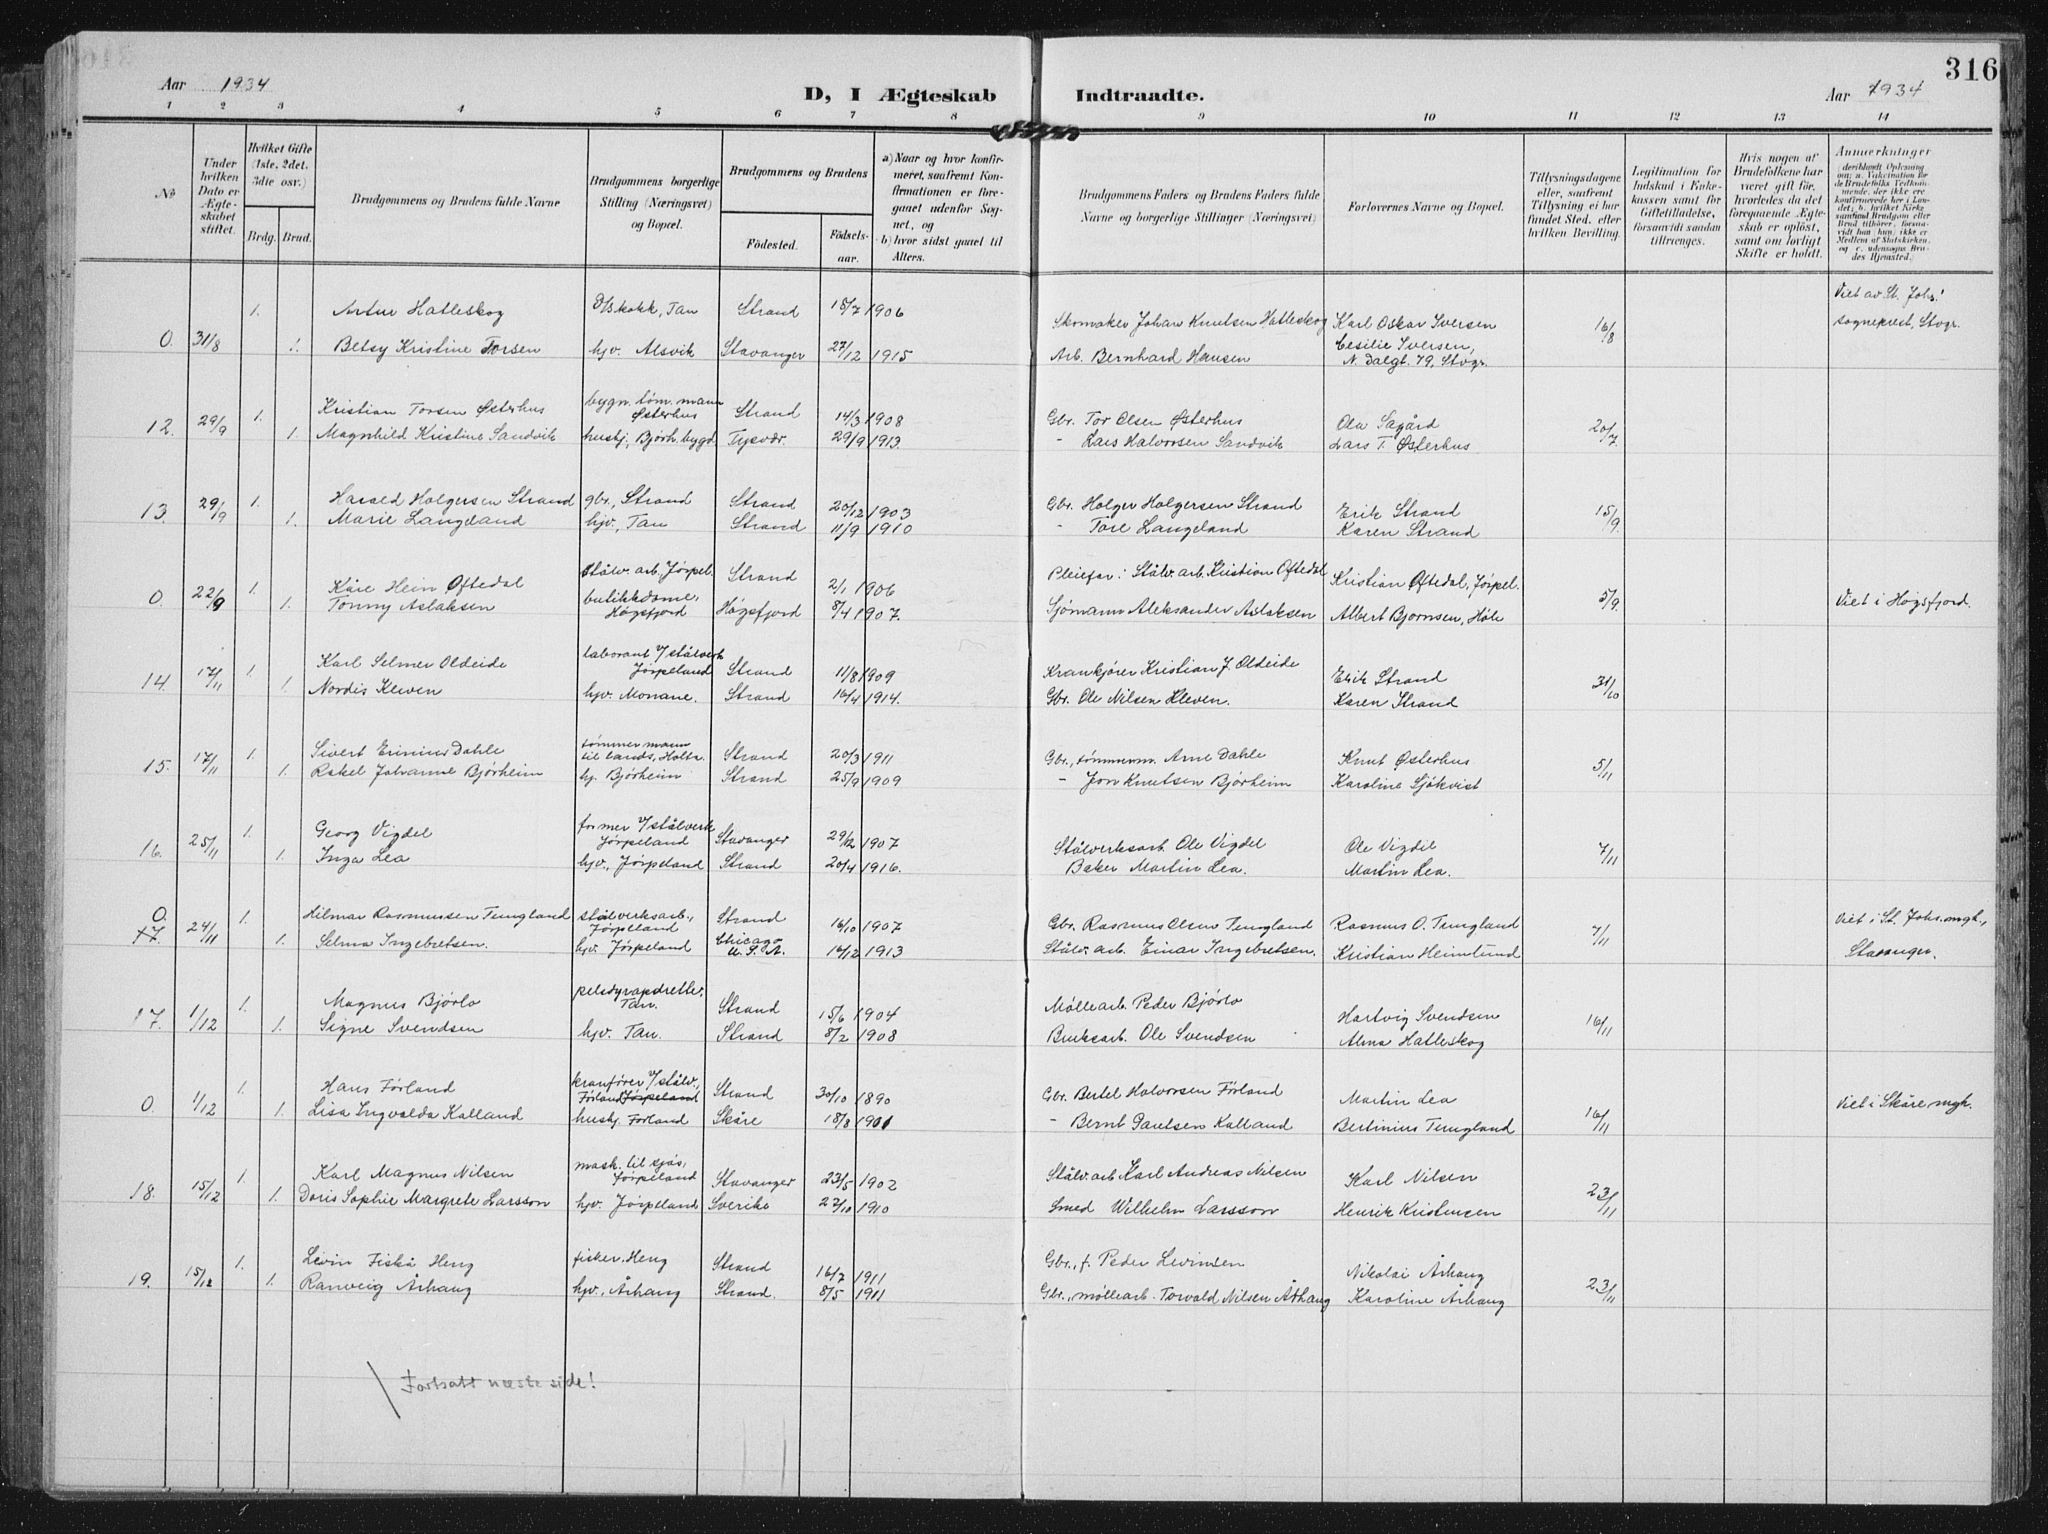 316
Aar 1934
D, I Ægteskab Indtraadte.
Aar 1934
1 2 3 4 5 6 7 8 9 10 11 12 13 14
№
Under hvilken Dato er Ægteskabet stiftet.
Hvilket Gifte (1ste, 2det, 3dte osv.)
Brdg. Brud.
Brudgommens og Brudens fulde Navne
Brudgommens borgerlige Stilling (Næringsvei) og Bopæl.
Brudgommens og Brudens
Fødested.
Fødsels-aar.
a) Naar og hvor konfirmeret, saafremt Konfirmationen er foregaaet udenfor Sognet, og
b) hvor sidst gaaet til Alters.
Brudgommens Faders og Brudens Faders fulde Navne og borgerlige Stillinger (Næringsvei)
Forlovernes Navne og Bopæl.
Tillysningsdagene eller, saafremt Tillysning ei har fundet Sted, efter hvilken Bevilling.
Legitimation for Indskud i Enkekassen samt for Giftetilladelse, forsaavidt saadan tiltrænges.
Hvis nogen af Brudefolkene har været gift før, hvorledes da det foregaaende Ægteskab er opløst, samt om lovligt Skifte er holdt.
Anmerkninger
1. Artur Hatleskog D/Skokk, Tau Strand 15/7 1906 Skomaker Johan Knutsen Hatleskog Karl Oskar Iversen Viet av St. Johs.
0. 31/8 1. Betsy Kristine Torsen hjv. Alsvik Stavanger 27/12 1915 Arb. Bernhard Hansen Cesilie Iversen, N. Dalgt. 79, Stvgr. 16/8 sogneprest, Stvgr.
1. Kristian Torsen Østerhus bygn. tøm. mann Østerhus Strand 14/3 1908 Gbr. Tor Olsen Østerhus Ola Sagård
12. 29/9 1. Magnhild Kristine Sandvik hushj. Bjørh.bygd Tysvær 29/9 1913. - Lars Halvorsen Sandvik Lars T. Østerhus 20/7.
1. Harald Holgersen Strand gbr., Strand Strand 20/12 1903 Gbr. Holger Holgersen Strand Erik Strand
13. 29/9 1. Marie Langeland hjv., Tau Strand 11/9 1910 - Tore Langeland Karen Strand 15/9.
1. Kåre Hein Oftedal stålv. arb. Jørpel. Strand 2/1 1906 Pleiefar: Stålv. arb. Kristian Oftedal Kristian Oftedal, Jørpel.
0. 22/9 1. Tonny Aslaksen butikkdame, Høgsfjord Høgsfjord 8/4 1907. Sjømann Aleksander Aslaksen Albert Bjørnsen, Høle 5/9. Viet i Høgsfjord.
1. Karl Selmer Oldeide laborant v/stålverk Jørpeland Strand 11/8 1909 Krankjører Kristian J. Oldeide Erik Strand
14. 17/11 1. Nordis Kleven hjv. Monane. Strand 16/4 1914. Gbr. Ole Nilsen Kleven. Karen Strand 31/10
1. Sivert Erinius Dahle tømmermann til lands, Holta Strand 20/3 1911 Gbr., tømmerm. Arne Dahle Knut Østerhus
15. 17/11 1. Rakel Johanne Bjørheim hj. Bjørheim Strand 25/9 1909 - Jon Knutsen Bjørheim Karoline Sjøkvist 5/11
1. Georg Vigdel former v/stålverk Jørpeland Stavanger 29/12 1907 Stålverksarb. Ole Vigdel Ole Vigdel
16. 25/11 1. Inga Lea hjv., Jørpeland Strand 20/4 1916. Baker Martin Lea. Martin Lea. 7/11
0. 1. Hilmar Rasmussen Tungland stålverksarb., Jørpeland Strand 16/10 1907 Gbr. Rasmus Olsen Tungland Rasmus O. Tungland Viet i St. Johs. mgh.,
17. 24/11 1. Selma Ingebretsen. hjv. Jørpeland Chicago U.S.A. 16/12 1913 Stålv. arb. Einar Ingebretsen. Kristian Heimlund 7/11 Stavanger.
1. Magnus Bjørlo pelsdyropdretter, Tau. Strand 15/6 1904 Møllearb. Peder Bjørlo Hartvig Svendsen
17. 1/12 1. Signe Svendsen hjv. Tau. Strand 8/2 1908 Bruksarb. Ole Svendsen Alma Hatleskog 16/11
1. Hans Førland kranfører v/stålv., Førland Jørpeland Strand 30/10 1890 Gbr. Bertel Halvorsen Førland Martin Lea
0. 1/12 1. Lisa Ingvalda Kalland hushj. Førland Skåre 18/8 1901 - Bernt Paulsen Kalland Bertinius Tungland 16/11 Viet i Skåre mgh.
1. Karl Magnus Nilsen mask. til sjøs, Jørpeland Stavanger 23/5 1902 Stålv. arb. Karl Andreas Nilsen Karl Nilsen
18. 15/12 1. Doris Sophie Margrete Larsson hjv. Jørpeland Sverike 27/10 1910 Smed Wilhelm Larsson Henrik Kristensen 23/11
1. Levin Fiskå Heng fisker, Heng Strand 16/7 1911 Gbr., f. Peder Levinsen Nikolai Århaug
19. 15/12 1. Ranveig Århaug hjv., Århaug Strand. 8/5 1911 Gbr., møllearb. Torvald Nilsen Århaug Karoline Århaug 23/11
Fortsatt næste side!